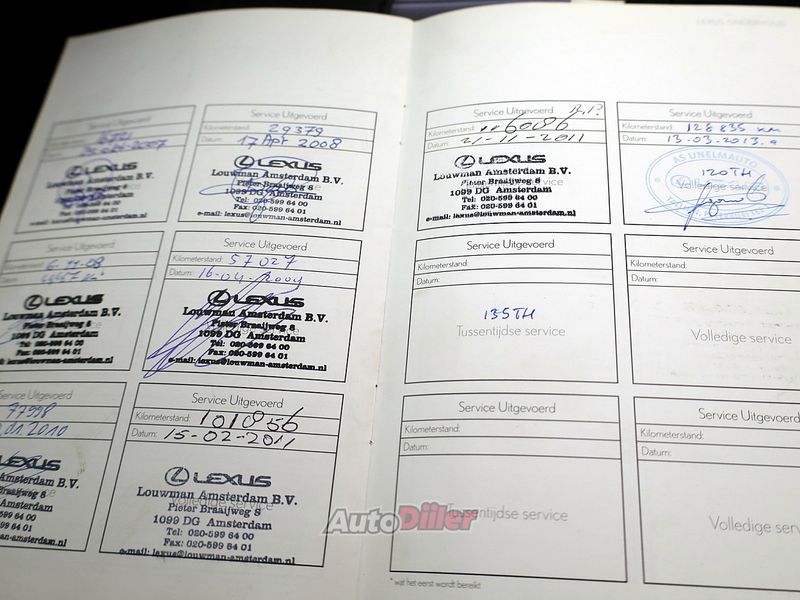 Service Uitgevoerd
Kilometerstand: 29379
Datum: 17 Apr 2008
LEXUS
Louwman Amsterdam B.V.
Pieter Braaijweg 8
1099 DG Amsterdam
Tel: 020-599 64 00
Fax: 020-599 64 01
e-mail: lexus@louwman-amsterdam.nl
Service Uitgevoerd
6-11-08
LEXUS
Louwman Amsterdam B.V.
Pieter Braaijweg 8
1099 DG Amsterdam
Tel: 020-599 64 00
Fax: 020-599 64 01
lexus@louwman-amsterdam.nl
Service Uitgevoerd
Kilometerstand: 57027
Datum: 16-04-2009
LEXUS
Louwman Amsterdam B.V.
Pieter Braaijweg 8
1099 DG Amsterdam
Tel: 020-599 64 00
Fax: 020-599 64 01
e-mail: lexus@louwman-amsterdam.nl
Service Uitgevoerd
77998
.01.2010
LEXUS
Amsterdam B.V.
Braaijweg 8
Amsterdam
020-599 64 00
020-599 64 01
Service Uitgevoerd
Kilometerstand: 101856
Datum: 15-02-2011
LEXUS
Louwman Amsterdam B.V.
Volledige service
Pieter Braaijweg 8
1099 DG Amsterdam
Tel: 020-599 64 00
Fax: 020-599 64 01
e-mail: lexus@louwman-amsterdam.nl
Service Uitgevoerd
Kilometerstand:
Datum: 21-11-2011
LEXUS
Louwman Amsterdam B.V.
Pieter Braaijweg 8
1099 DG Amsterdam
Tel: 020-599 64 00
Fax: 020-599 64 01
e-mail: lexus@louwman-amsterdam.nl
Service Uitgevoerd
Kilometerstand: 128835 km
Datum: 13.03.2013.a
AS UNELMAUTO
120TH
Volledige service
Service Uitgevoerd
Kilometerstand:
Datum:
135TH
Tussentijdse service
Service Uitgevoerd
Kilometerstand:
Datum:
Volledige service
Service Uitgevoerd
Kilometerstand:
Datum:
Tussentijdse service
* wat het eerst wordt bereikt
Service Uitgevoerd
Kilometerstand:
Datum:
Volledige service
AutoDiller